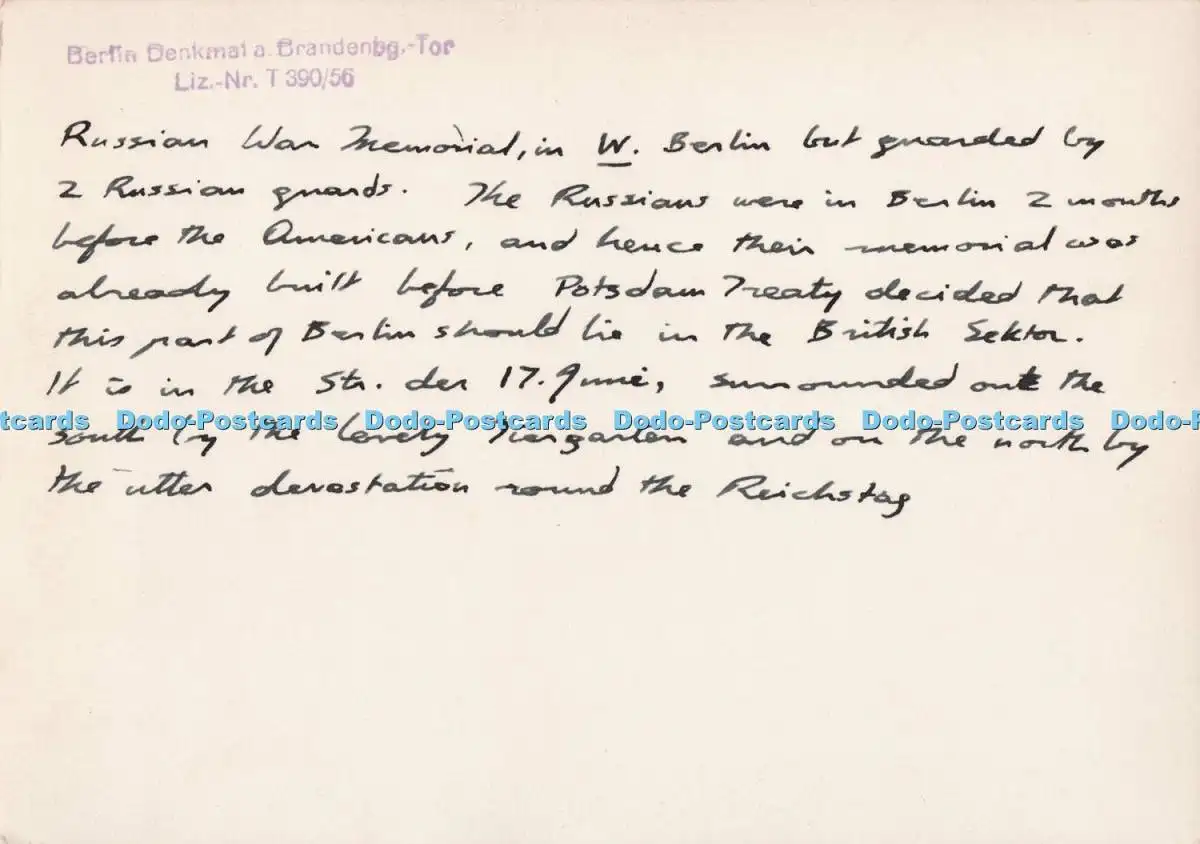 Berlin Denkmal a. Brandenbg.-Tor
Liz.-Nr. T 390/56
Russian War Memorial, in W. Berlin but guarded by
2 Russian guards. The Russians were in Berlin 2 months
before the Americans, and hence their memorial was
already built before Potsdam Treaty decided that
this part of Berlin should lie in the British Sektor.
It is in the Str. der 17. Juni, surrounded on the
Dodo-Postcards Dodo-Postcards Dodo-Postcards Dodo-Postcards
south by the lovely Tiergarten and on the north by
the utter devastation round the Reichstag